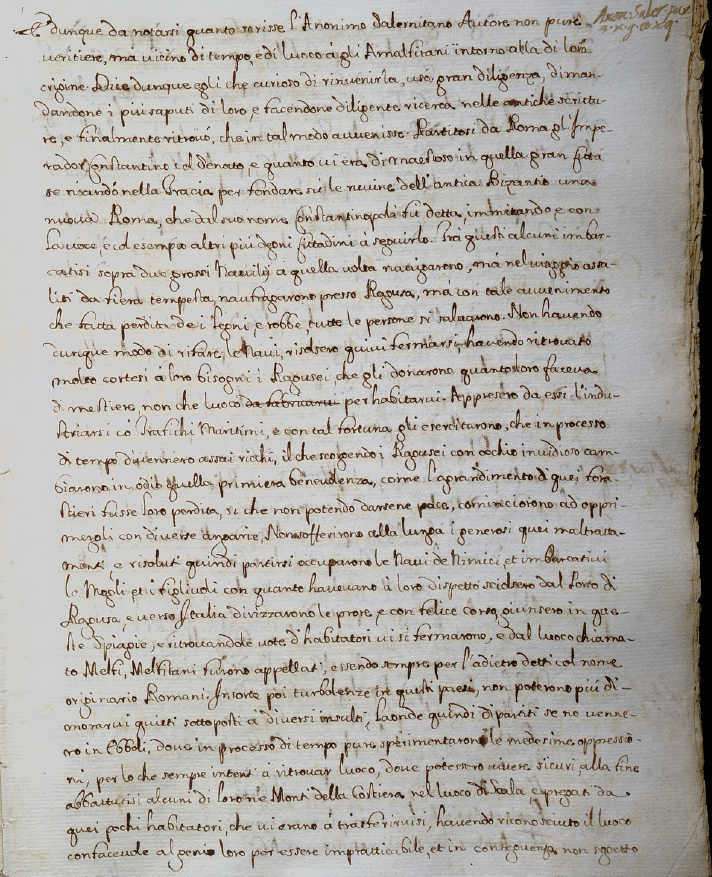 È dunque da notarsi quanto scrisse l'Anonimo Salernitano Autore non pure
veritiere, ma vicino di tempo, e di luoco à gli Amalfitani intorno alla di loro
origine. Dice dunque egli che curioso di rinvenirla, usò gran diligenza, diman-
dandone i più saputi di loro, e facendone diligente ricerca nelle antiche scrittu-
re, e finalmente ritrovò, che in tal modo avvenisse. Partitosi da Roma gl'Impe-
rador Constantino col Senato, e quanto vi era di maestoso in quella gran Città
se n'andò nella Tracia per fondare sù le ruvine dell'antica Bizantio una
nuova Roma, che dal suo nome Constantinopoli fù detta, immitando e con
la voce, e col esempio altri più degni Cittadini a seguirlo. Trà questi alcuni imbar-
catisi sopra due grossi Navilij à quella volta navigarono, mà nel viaggio assa-
liti da fiera tempesta, naufragarono presso Ragusa, mà con tale avvenimento
che fatta perdita de i legni, e robbe, tutte le persone si salvarono. Non havendo
dunque modo di rifare le Navi, risolsero quivi fermarsi, havendo ritrovato
molto cortesi à loro bisogni i Ragusei che gli donarono quanto loro faceva
di mestiere, non che luoco da fabricarvi per habitarvi. Appresero da essi l'indu-
striarsi cò Trafichi Maritimi, e con tal fortuna gli esercitarono, che in processo
di tempo divennero assai ricchi, il che scorgendo i Ragusei con occhio invidioso cam-
biarono in odio quella primiera benevolenza, come l'agrandimento di quei fora-
stieri fusse loro perdita, si che non potendo darsene pace, cominciorono ad oppri-
mergli con diverse angarie, Non sofferirono alla lunga i generosi quei maltratta-
menti, e risoluti quindi partirsi occuparono le Navi de Nimici, et imbarcativi
le Mogli, et i figliuoli con quanto havevano à loro dispetto sciolsero dal Porto di
Ragusa, e verso Italia dirizzarono le prore, e con felice corso giunsero in que-
ste Spiagie, e ritrovandole vote d'habitatori vi si fermarono, e dal luoco chiama-
to Melfi, Melfitani furono appellati, essendo sempre per l'adietro detti col nome
originario Romani. Insorte poi turbolenze in questi paesi, non poterono più di-
morarvi quieti sottoposti à diversi insulti, laonde quindi dipartiti se ne venne-
ro in Ebboli, dove in processo di tempo pure sperimentarono le medesime oppressio-
ni, per lo che sempre intenti à ritrovar luoco, dove potessero vivere sicuri, alla fine
abbattutisi alcuni di loro ne Monti della Costiera nel luoco di Scala, e pregati da
quei pochi habitatori, che vi erano à trasferirvisi, havendo riconosciuto il luoco
confacevole al genio loro per essere impratticabile, et in conseguenza non sogetto